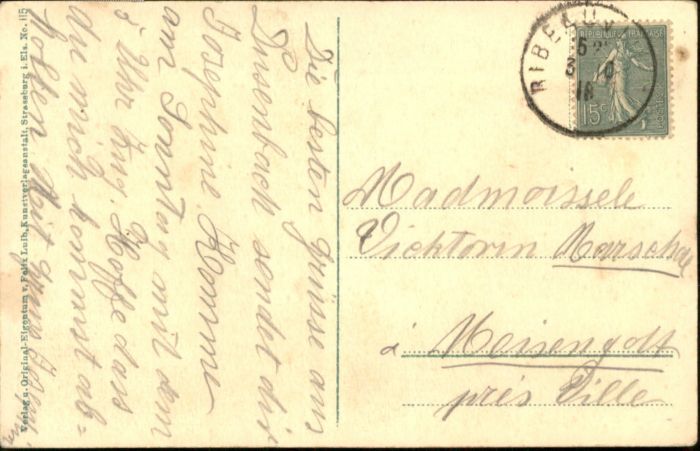 Die besten Grüsse aus
Dusenbach sendet dir
Josephine. Komme
am Sonntag mit dem
6 Uhr Zug. Hoffe dass
du mich kommst ab=
holen. Mit gruss Josephi
ne,
Verlag u. Original-Eigentum v. Felix Luib, Kunstverlagsanstalt, Strassburg i. Els. No. 115
RIBEAUV
5
18
RÉPUBLIQUE FRANÇAISE
15c
POSTES
Madmoissele
Vicktorin Marschal
à Meisengott
près Ville